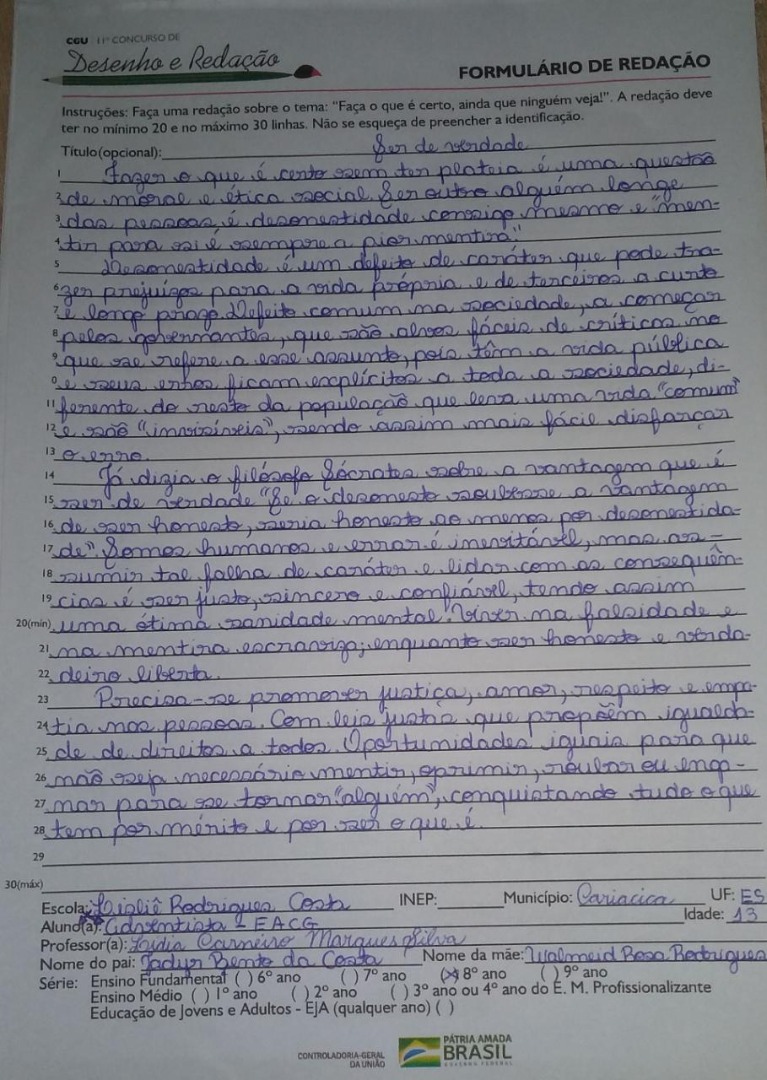 CGU 11º CONCURSO DE
Desenho e Redação
FORMULÁRIO DE REDAÇÃO
Instruções: Faça uma redação sobre o tema: "Faça o que é certo, ainda que ninguém veja!". A redação deve
ter no mínimo 20 e no máximo 30 linhas. Não se esqueça de preencher a identificação.
Título(opcional): Ser de verdade
1 Fazer o que é certo sem ter plateia é uma questão
2 de moral e ética social. Ser outro alguém longe
3 das pessoas é desonestidade consigo mesmo e "men-
4 tir para si é sempre a pior mentira."
5 Desonestidade é um defeito de caráter que pode tra-
6 zer prejuízos para a vida própria e de terceiros a curto
7 e longo prazo. Defeito comum na sociedade, a começar
8 pelos governantes, que são alvos fáceis de críticas no
9 que se refere a esse assunto, pois têm a vida pública
0 e seus erros ficam explícitos a toda a sociedade, di-
11 ferente do resto da população que leva uma vida "comum"
12 e são "invisíveis", sendo assim mais fácil disfarçar
13 o erro.
14 Já dizia o filósofo Sócrates sobre a vantagem que é
15 ser de verdade "Se o desonesto soubesse a vantagem
16 de ser honesto, seria honesto ao menos por desonestida-
17 de". Somos humanos e errar é inevitável, mas as-
18 sumir tal falha de caráter e lidar com as consequên-
19 cias é ser justo, sincero e confiável, tendo assim
20(mín) uma ótima sanidade mental. Viver na falsidade e
21 na mentira escraviza; enquanto ser honesto e verda-
22 deiro liberta.
23 Precisa-se promover justiça, amor, respeito e empa-
24 tia nas pessoas. Com leis justas que propõem igualda-
25 de de direitos a todos. Oportunidades iguais para que
26 não seja necessário mentir, oprimir, roubar ou enga-
27 nar para se tornar "alguém", conquistando tudo o que
28 tem por mérito e por ser o que é.
29
30(máx)
Escola: Rodrigues Costa INEP: Município: Cariacica UF: ES
Aluno(a): Adventista - EACG Idade: 13
Professor(a): Lydia Carneiro Marques Silva
Nome do pai: Bento da Costa Nome da mãe: Rosa Rodrigues
Série: Ensino Fundamental ( ) 6º ano ( ) 7º ano (X) 8º ano ( ) 9º ano
Ensino Médio ( ) 1º ano ( ) 2º ano ( ) 3º ano ou 4º ano do E. M. Profissionalizante
Educação de Jovens e Adultos - EJA (qualquer ano) ( )
CONTROLADORIA-GERAL
DA UNIÃO
PÁTRIA AMADA
BRASIL
GOVERNO FEDERAL